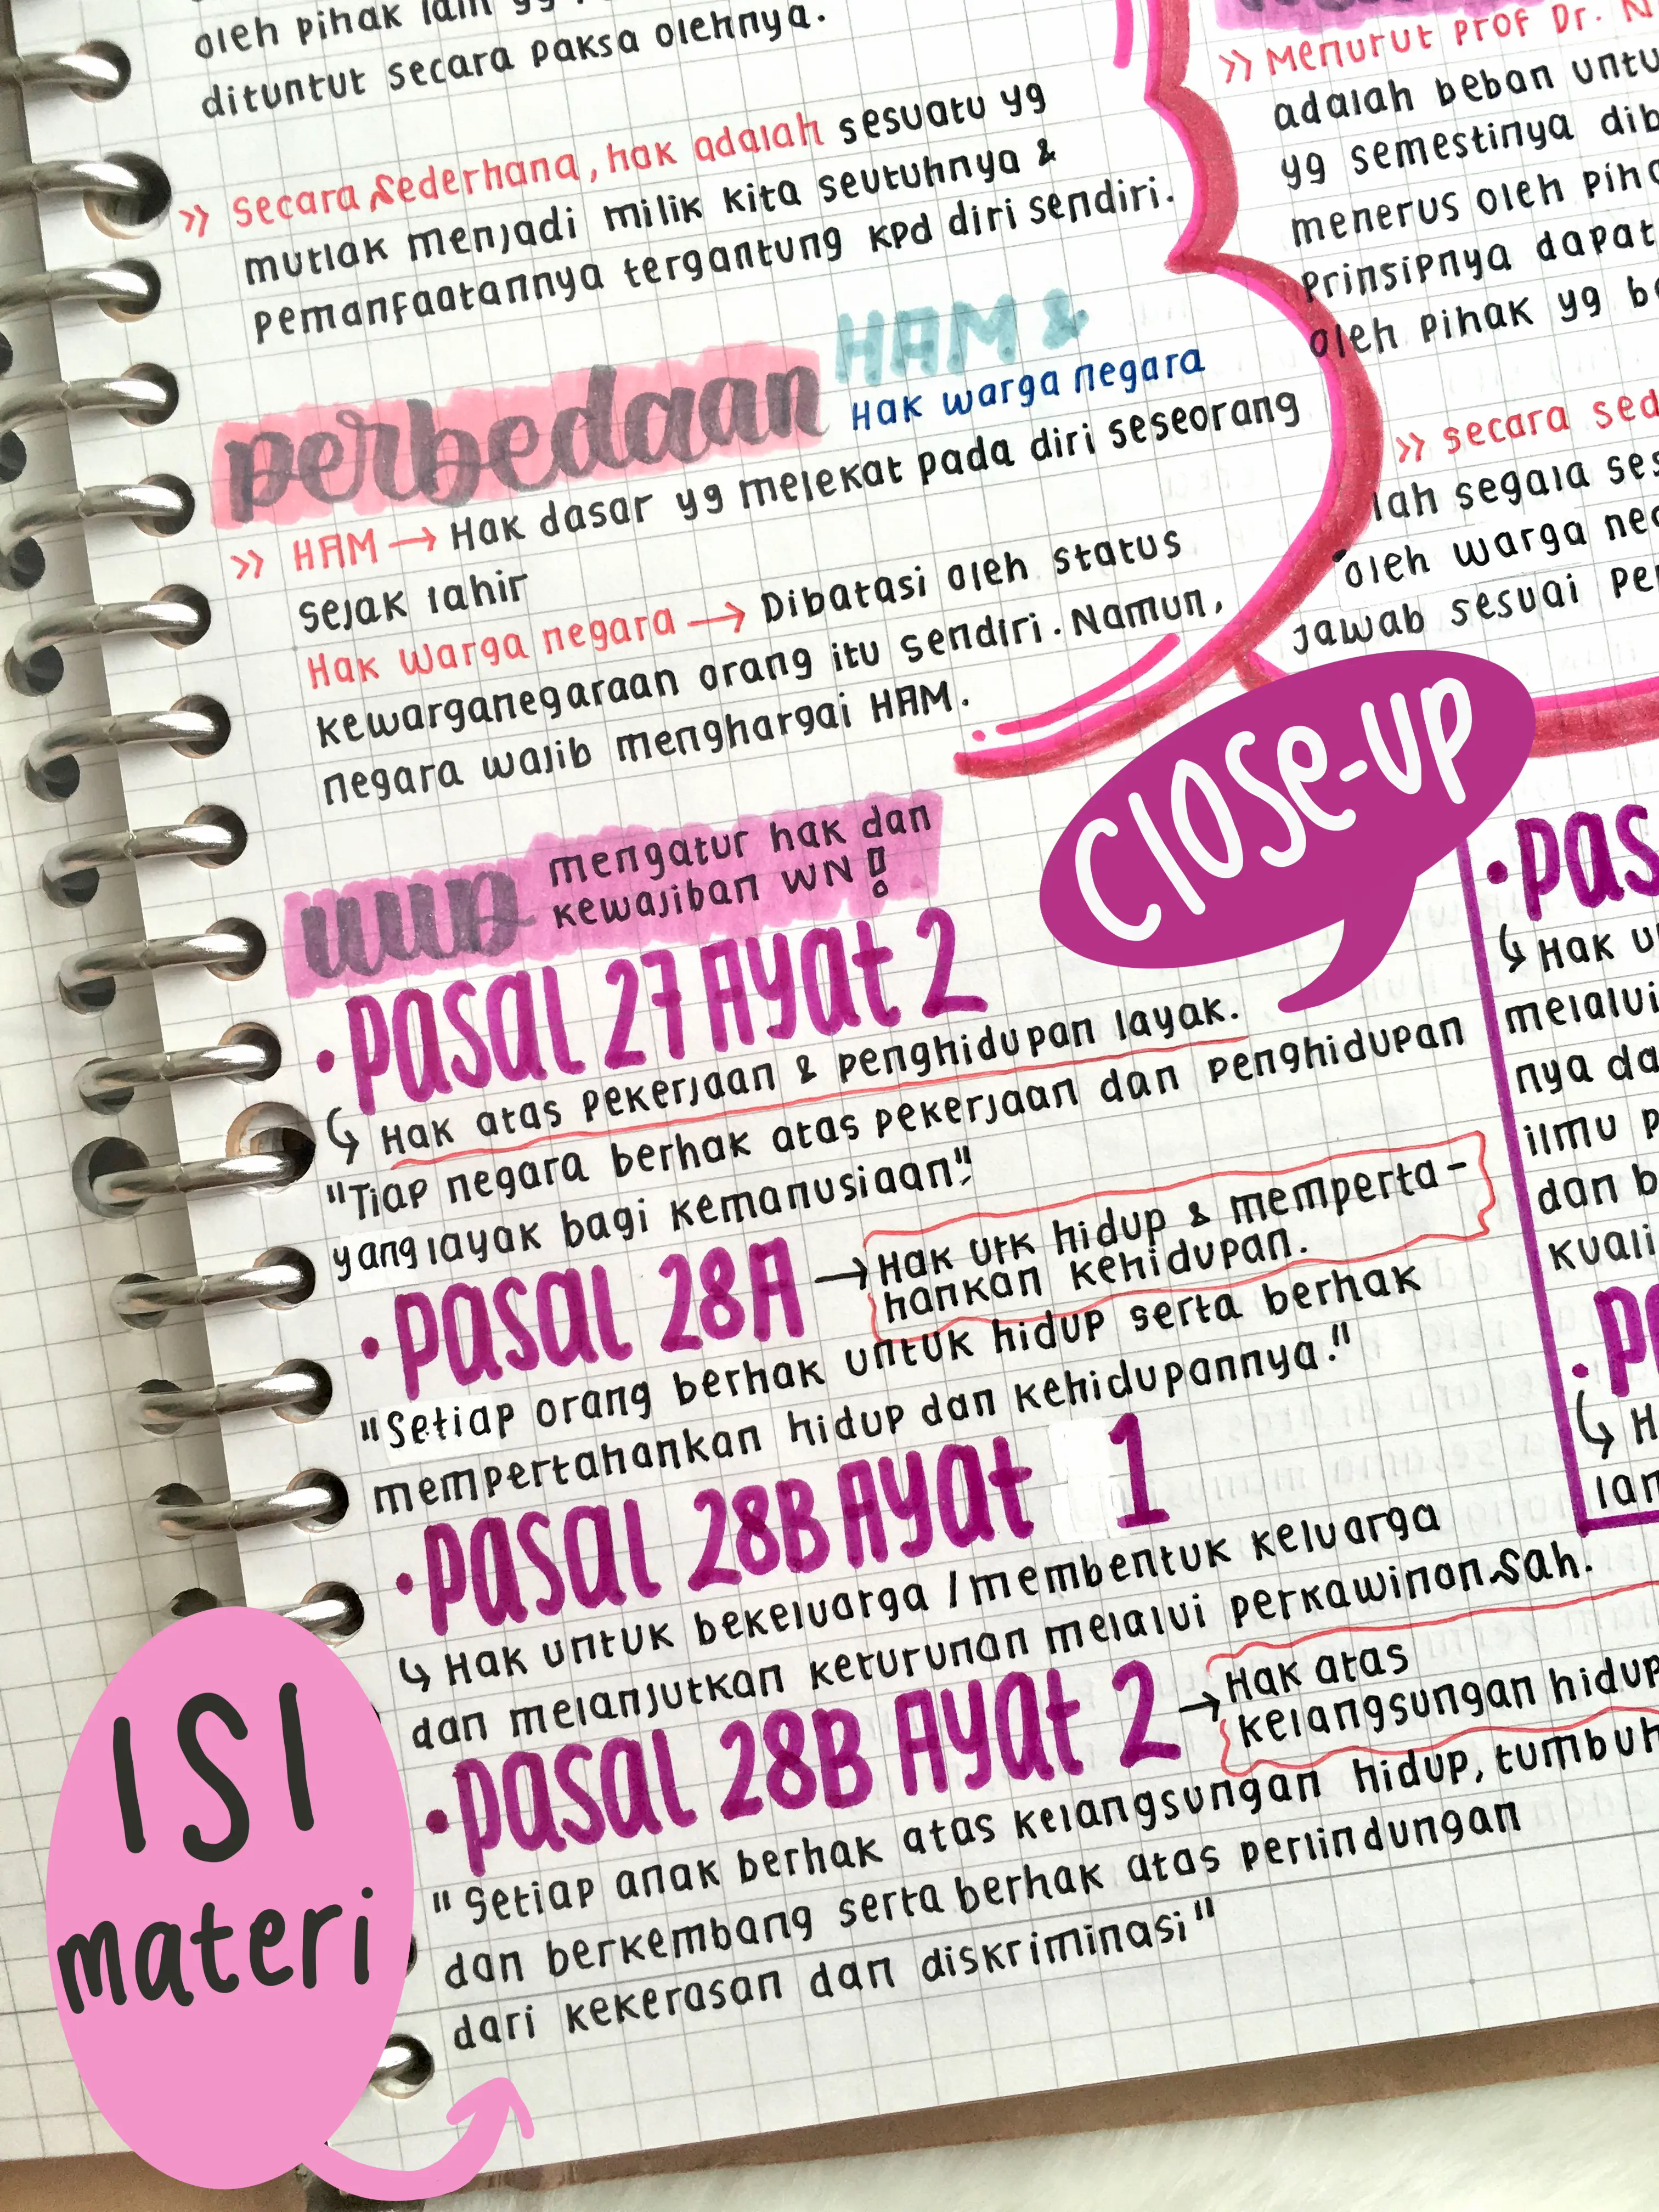 oleh pihak lain yg
dituntut secara paksa olehnya.
>> secara sederhana, hak adalah sesuatu yg
mutlak menjadi milik kita seutuhnya &
pemanfaatannya tergantung kpd diri sendiri.
perbedaan HAM &
Hak warga negara
>> HAM → Hak dasar yg melekat pada diri seseorang
sejak lahir
Hak warga negara → Dibatasi oleh status
kewarganegaraan orang itu sendiri. Namun,
negara wajib menghargai HAM.
UUD mengatur hak dan
kewajiban WN!
• Pasal 27 Ayat 2
↳ Hak atas pekerjaan & penghidupan layak.
"Tiap negara berhak atas pekerjaan dan penghidupan
yang layak bagi kemanusiaan."
• Pasal 28A → Hak utk hidup & memperta-
hankan kehidupan.
"Setiap orang berhak untuk hidup serta berhak
mempertahankan hidup dan kehidupannya."
• Pasal 28B Ayat 1
↳ Hak untuk bekeluarga / membentuk keluarga
dan melanjutkan keturunan melalui perkawinan sah.
• Pasal 28B Ayat 2 → Hak atas
kelangsungan hidup
"Setiap anak berhak atas kelangsungan hidup, tumbuh
dan berkembang serta berhak atas perlindungan
dari kekerasan dan diskriminasi"
>> Menurut Prof Dr. N
adalah beban untu
yg semestinya dib
menerus oleh piha
prinsipnya dapat
oleh pihak yg be
>> secara sed
lah segala ses
oleh warga neg
jawab sesuai pe
CLOSE-UP
• Pas
↳ Hak u
melalui
nya da
ilmu p
dan b
kuali
• Pa
↳ H
lan
ISI
materi